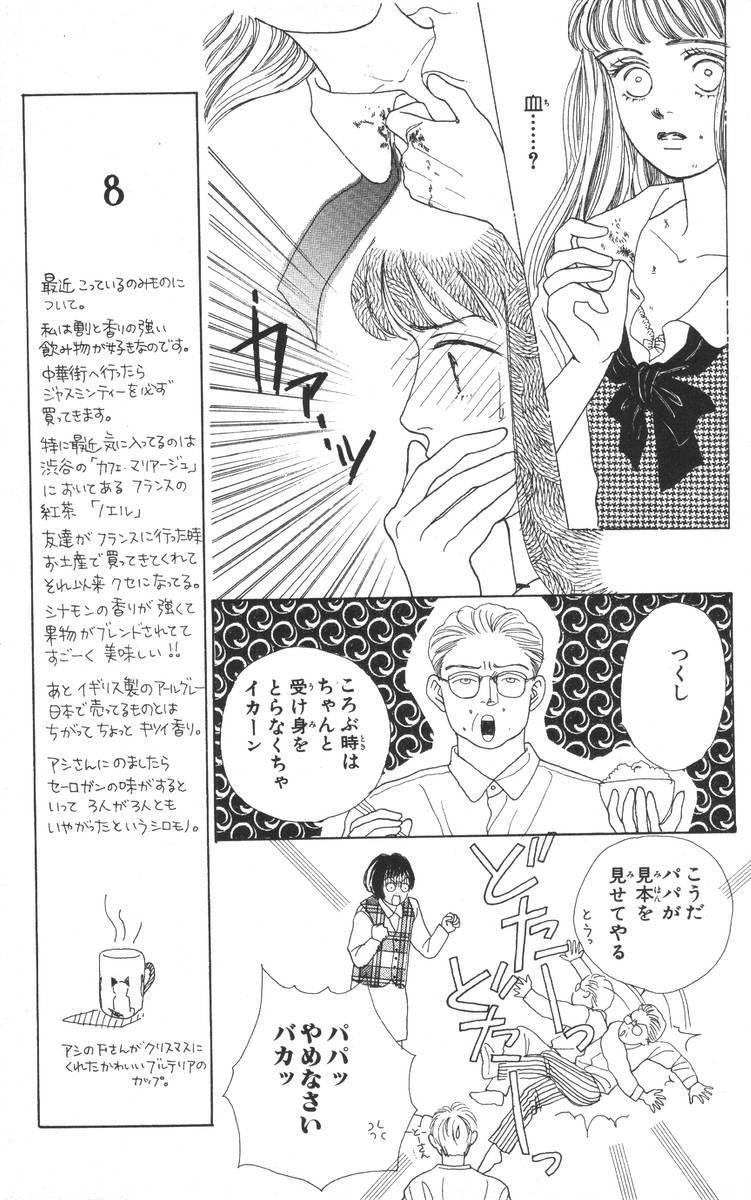 血……?
カアーッ
つくし
ころぶ時は
ちゃんと
受け身を
とらなくちゃ
イカーン
こうだ
パパが
見本を
見せてやる
とうっ
どたーっ
どたーっ
パパッ
やめなさい
バカッ
とーさん
8
最近こっているのみものに
ついて。
私は割と香りの強い
飲み物が好きなのです。
中華街へ行ったら
ジャスミンティーを必ず
買ってきます。
特に最近気に入ってるのは
渋谷の「カフェ・マリアージュ」
においてある フランスの
紅茶 「ノエル」
友達がフランスに行った時
お土産で買ってきてくれて
それ以来 クセになってる。
シナモンの香りが強くて
果物がブレンドされてて
すごーく美味しい!!
あとイギリス製のアールグレー
日本で売ってるものとは
ちがってちょっとキツイ香り。
アシさんにのましたら
セーロガンの味がすると
いって 3人が3人とも
いやがったというシロモノ。
アシのFさんがクリスマスに
くれたかわいいブルテリアの
カップ。